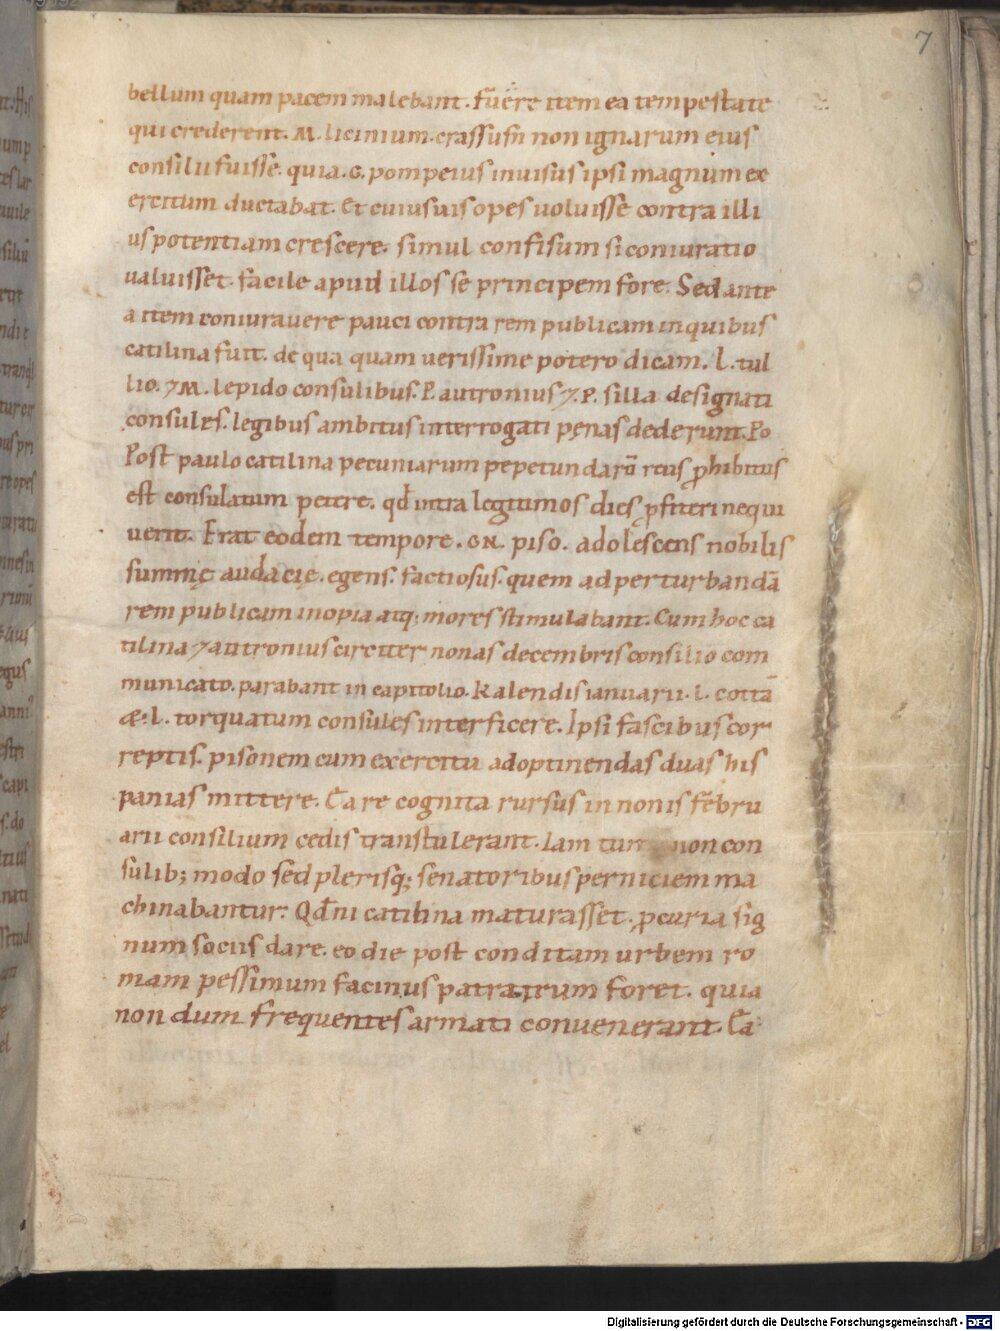 7
bellum quam pacem malebant. fuere item ea tempestate
qui crederent. M. licinium. crassum non ignarum eius
consilii fuisse. quia. G. pompeius inuisus ipsi magnum ex
ercitum ductabat. Et cuius uis opes uoluisse contra illi
us potentiam crescere. simul confisum si coniuratio
ualuisset. facile apud illos se principem fore. Sed ante
a item coniurauere pauci contra rem publicam in quibus
catilina fuit. de qua quam uerissime potero dicam. L. tul
lio. ⁊ M. lepido consulibus. P. autronius ⁊. P. silla designati
consules. legibus ambitus interrogati pęnas dederunt. Po
Post paulo catilina pecuniarum repetundarū reus ꝓhibitus
est consulatum petere. qđ intra legitimos dies ꝓfiteri nequi
uerit. Erat eodem tempore. GN. piso. adolescens nobilis
summę audacię. egens. factiosus. quem ad perturbandā
rem publicam inopia atq; mores stimulabant. Cum hoc ca
tilina ⁊ autronius circiter nonas decembris consilio com
municato. parabant in capitolio. Kalendis ianuarii. L. cottā
&. L. torquatum consules interficere. Ipsi fascibus cor
reptis. pisonem cum exercitu ad optinendas duas his
panias mittere. Ea re cognita rursus in nonis febru
arii consilium cedis transtulerant. Iam tum non con
sulib; modo sed plerisq; senatoribus perniciem ma
chinabantur. Qđ ni catilina maturasset. ꝓ curia sig
num sociis dare. eo die post conditam urbem ro
mam pessimum facinus patratum foret. quia
non dum frequentes armati conuenerant. Ea
Digitalisierung gefördert durch die Deutsche Forschungsgemeinschaft - DFG